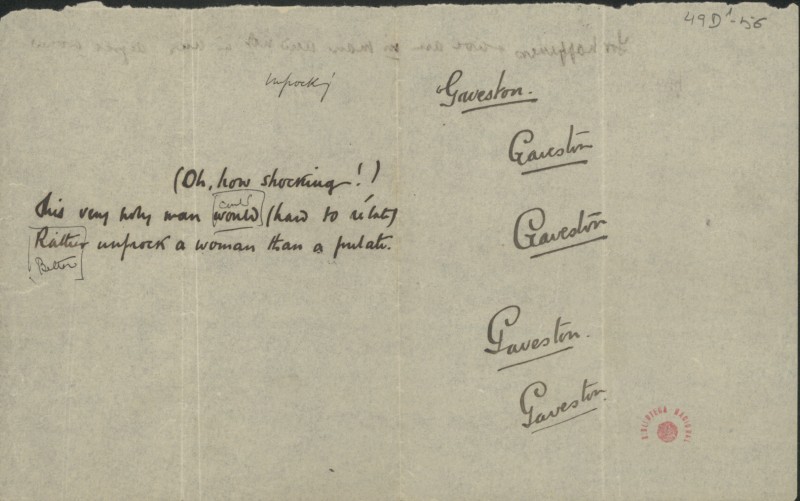 49D¹-56
unfrock
(Oh, how shocking!)
This very holy man would (hard to relate)
could
Rather unfrock a woman than a prelate.
Better
Gaveston.
Gaveston
Gaveston
Gaveston.
Gaveston.
BIBLIOTECA NACIONAL